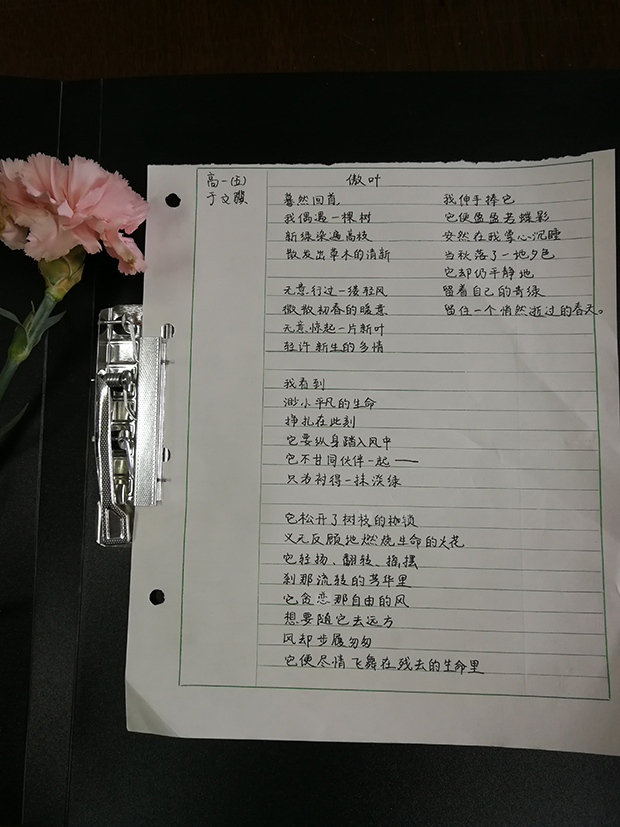 高一(五)
于文骥
傲叶
蓦然回首
我偶遇一棵树
新绿染遍高枝
散发出草木的清新
无意行过一缕轻风
微散初春的暖意
无意惊起一片新叶
轻许新生的多情
我看到
渺小平凡的生命
挣扎在此刻
它要纵身踏入风中
它不甘同伙伴一起——
只为衬得一抹淡绿
它松开了树枝的枷锁
义无反顾地燃烧生命的火花
它轻扬、翻转、摇摆
刹那流转的芳华里
它贪恋那自由的风
想要随它去远方
风却步履匆匆
它便尽情飞舞在残去的生命里
我伸手捧它
它便盈盈若蝶影
安然在我掌心沉睡
当秋落了一地夕色
它却仍平静地
留着自己的青绿
留住一个悄然逝过的春天。